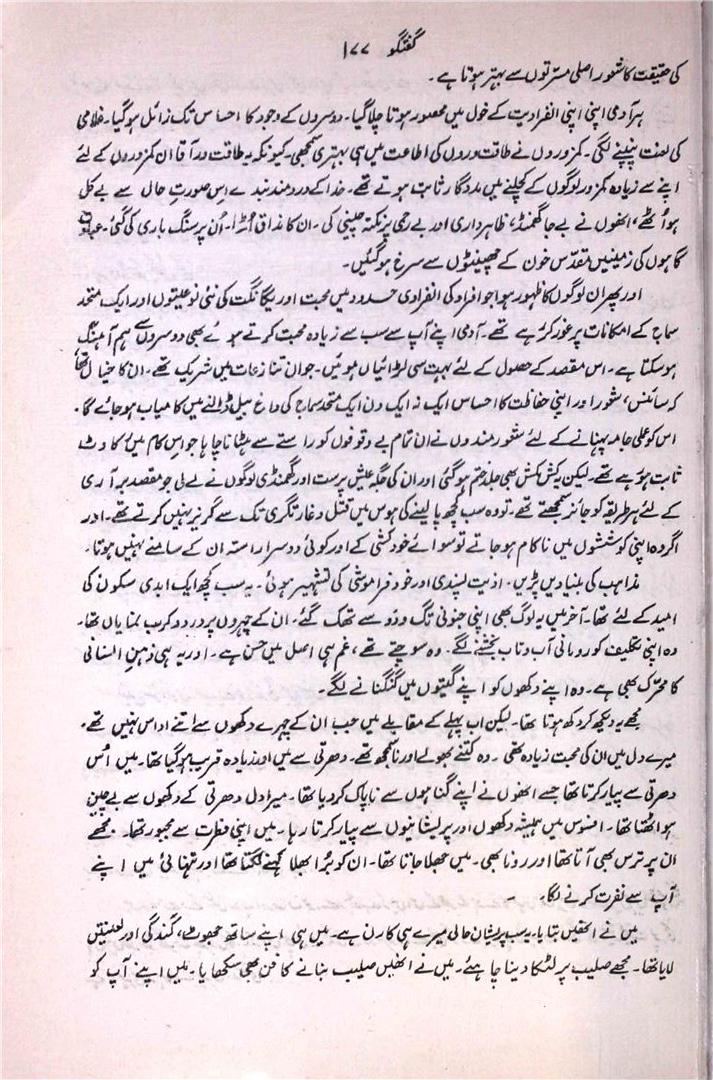 گفتگو ۱۷۷
کی حقیقت کا شعور اصلی مسرتوں سے بہتر ہوتا ہے۔
ہر آدمی اپنی اپنی انفرادیت کے خول میں محصور ہوتا چلا گیا۔ دوسروں کے وجود کا احساس تک زائل ہو گیا۔ غلامی
کی لعنت پنپنے لگی۔ کمزوروں نے طاقت وروں کی اطاعت میں ہی بہتری سمجھی۔ کیونکہ یہ طاقت ور آقا ان کمزوروں کے لئے
اپنے سے زیادہ کمزور لوگوں کے کچلنے میں مددگار ثابت ہوتے تھے۔ خدا کے دردمند بندے اِس صورتِ حال سے بے کل
ہو اُٹھے، انھوں نے بے جا گھمنڈ، ظاہرداری اور بے رحمی پر نکتہ چینی کی۔ ان کا مذاق اُڑا۔ اُن پر سنگ باری کی گئی۔ عبادت
گاہوں کی زمینیں مقدّس خون کے چھینٹوں سے سرخ ہو گئیں۔
اور پھر ان لوگوں کا ظہور ہوا جو افراد کی انفرادی حدود میں محبت اور یگانگت کی نئی نوعیتوں اور ایک متحد
سماج کے امکانات پر غور کر رہے تھے۔ آدمی اپنے آپ سے سب سے زیادہ محبت کرتے ہوئے بھی دوسروں سے ہم آہنگ
ہو سکتا ہے۔ اس مقصد کے حصول کے لئے بہت سی لڑائیاں ہوئیں۔ جو ان تنازعات میں شریک تھے۔ ان کا خیال تھا
کہ سائنس، شعور اور اپنی حفاظت کا احساس ایک نہ ایک دن ایک متحد سماج کی داغ بیل ڈالنے میں کامیاب ہو جائے گا۔
اس کو عملی جامہ پہنانے کے لئے شعور مندوں نے ان تمام بے وقوفوں کو راستے سے ہٹانا چاہا جو اس کام میں رکاوٹ
ثابت ہو رہے تھے۔ لیکن یہ کش مکش بھی جلد ختم ہو گئی اور ان کی جگہ عیش پرست اور گھمنڈی لوگوں نے لے لی جو مقصد بر آری
کے لئے ہر طریقہ کو جائز سمجھتے تھے۔ تو وہ سب کچھ پا لینے کی ہوس میں قتل و غارتگری تک سے گریز نہیں کرتے تھے۔ اور
اگر وہ اپنی کوششوں میں ناکام ہو جاتے تو سوائے خودکشی کے اور کوئی دوسرا راستہ ان کے سامنے نہیں ہوتا۔
مذاہب کی بنیادیں پڑیں۔ اذیت پسندی اور خود فراموشی کی تشہیر ہوئی۔ یہ سب کچھ ایک ابدی سکون کی
امید کے لئے تھا۔ آخر میں یہ لوگ بھی اپنی جنونی تگ و دو سے تھک گئے۔ ان کے چہروں پر درد و کرب نمایاں تھا۔
وہ اپنی تکلیف کو رومانی آب و تاب بخشنے لگے۔ وہ سوچتے تھے، غم ہی اصل میں حسن ہے۔ اور یہ ہی ذہنِ انسانی
کا محرّک بھی ہے۔ وہ اپنے دکھوں کو اپنے گیتوں میں گنگنانے لگے۔
مجھے یہ دیکھ کر دکھ ہوتا تھا۔ لیکن اب پہلے کے مقابلے میں جب ان کے چہرے دکھوں سے اتنے اداس نہیں تھے۔
میرے دل میں ان کی محبت زیادہ تھی۔ وہ کتنے بھولے اور ناسمجھ تھے۔ دھرتی سے میں اور زیادہ قریب ہو گیا تھا۔ میں اُس
دھرتی سے پیار کرتا تھا جسے انھوں نے اپنے گناہوں سے ناپاک کر دیا تھا۔ میرا دل دھرتی کے دکھوں سے بے چین
ہو اٹھتا تھا۔ افسوس میں ہمیشہ دکھوں اور پریشانیوں سے پیار کرتا رہا۔ میں اپنی فطرت سے مجبور تھا۔ مجھے
ان پر ترس بھی آتا تھا اور رونا بھی۔ میں جھلا جاتا تھا۔ ان کو بُرا بھلا کہنے لگتا تھا اور تنہائی میں اپنے
آپ سے نفرت کرنے لگا۔
میں نے انھیں بتایا۔ یہ سب پریشان حالی میرے ہی کارن ہے۔ میں ہی اپنے ساتھ جھوٹ، گندگی اور لعنتیں
لایا تھا۔ مجھے صلیب پر لٹکا دینا چاہئے۔ میں نے انھیں صلیب بنانے کا فن بھی سکھایا۔ میں اپنے آپ کو